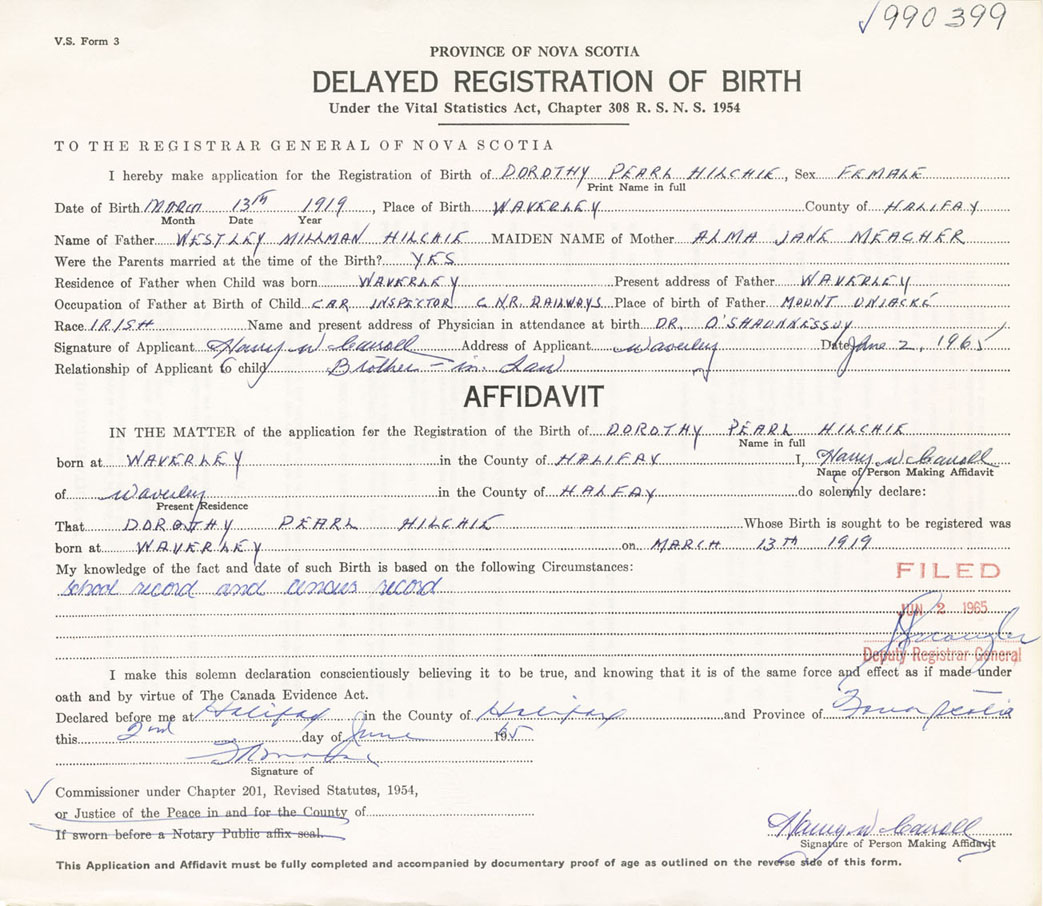 ✓990399
V.S. Form 3
PROVINCE OF NOVA SCOTIA
DELAYED REGISTRATION OF BIRTH
Under the Vital Statistics Act, Chapter 308 R. S. N. S. 1954
TO THE REGISTRAR GENERAL OF NOVA SCOTIA
I hereby make application for the Registration of Birth of DOROTHY PEARL HILCHIE, Sex FEMALE
Print Name in full
Date of Birth MARCH 13TH 1919, Place of Birth WAVERLEY County of HALIFAX
Month Date Year
Name of Father WESTLEY MILLMAN HILCHIE MAIDEN NAME of Mother ALMA JANE MEAGHER
Were the Parents married at the time of the Birth? YES
Residence of Father when Child was born WAVERLEY Present address of Father WAVERLEY
Occupation of Father at Birth of Child CAR INSPECTOR C.N.R. RAILWAYS Place of birth of Father MOUNT UNIACKE
Race IRISH Name and present address of Physician in attendance at birth DR. O'SHAUNNESSUY
Signature of Applicant Harry W Carroll Address of Applicant Waverley Date June 2, 1965
Relationship of Applicant to child Brother-in-Law
AFFIDAVIT
IN THE MATTER of the application for the Registration of the Birth of DOROTHY PEARL HILCHIE
Name in full
born at WAVERLEY in the County of HALIFAX I, Harry W Carroll
Name of Person Making Affidavit
of Waverley in the County of HALFAY do solemnly declare:
Present Residence
That DOROTHY PEARL HILCHIE Whose Birth is sought to be registered was
born at WAVERLEY on MARCH 13TH 1919
My knowledge of the fact and date of such Birth is based on the following Circumstances:
school record and census record
FILED
JUN 2 1965
Deputy Registrar General
I make this solemn declaration conscientiously believing it to be true, and knowing that it is of the same force and effect as if made under
oath and by virtue of The Canada Evidence Act.
Declared before me at Halifax in the County of Halifax and Province of Nova Scotia
this 2nd day of June 1965
Signature of
✓ Commissioner under Chapter 201, Revised Statutes, 1954,
or Justice of the Peace in and for the County of
If sworn before a Notary Public affix seal.
Harry W Carroll
Signature of Person Making Affidavit
This Application and Affidavit must be fully completed and accompanied by documentary proof of age as outlined on the reverse side of this form.